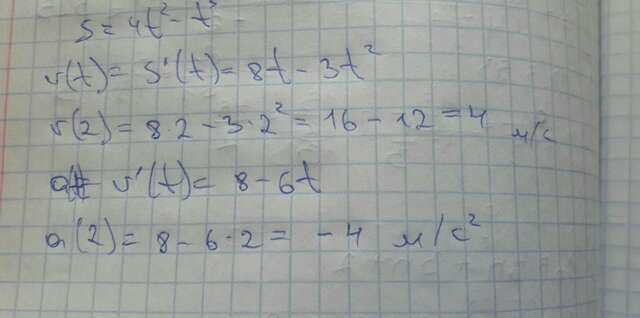 S = 4t² - t³
v(t) = S'(t) = 8t - 3t²
v(2) = 8·2 - 3·2² = 16 - 12 = 4 м/с
v'(t) = 8 - 6t
a(2) = 8 - 6·2 = -4 м/с²